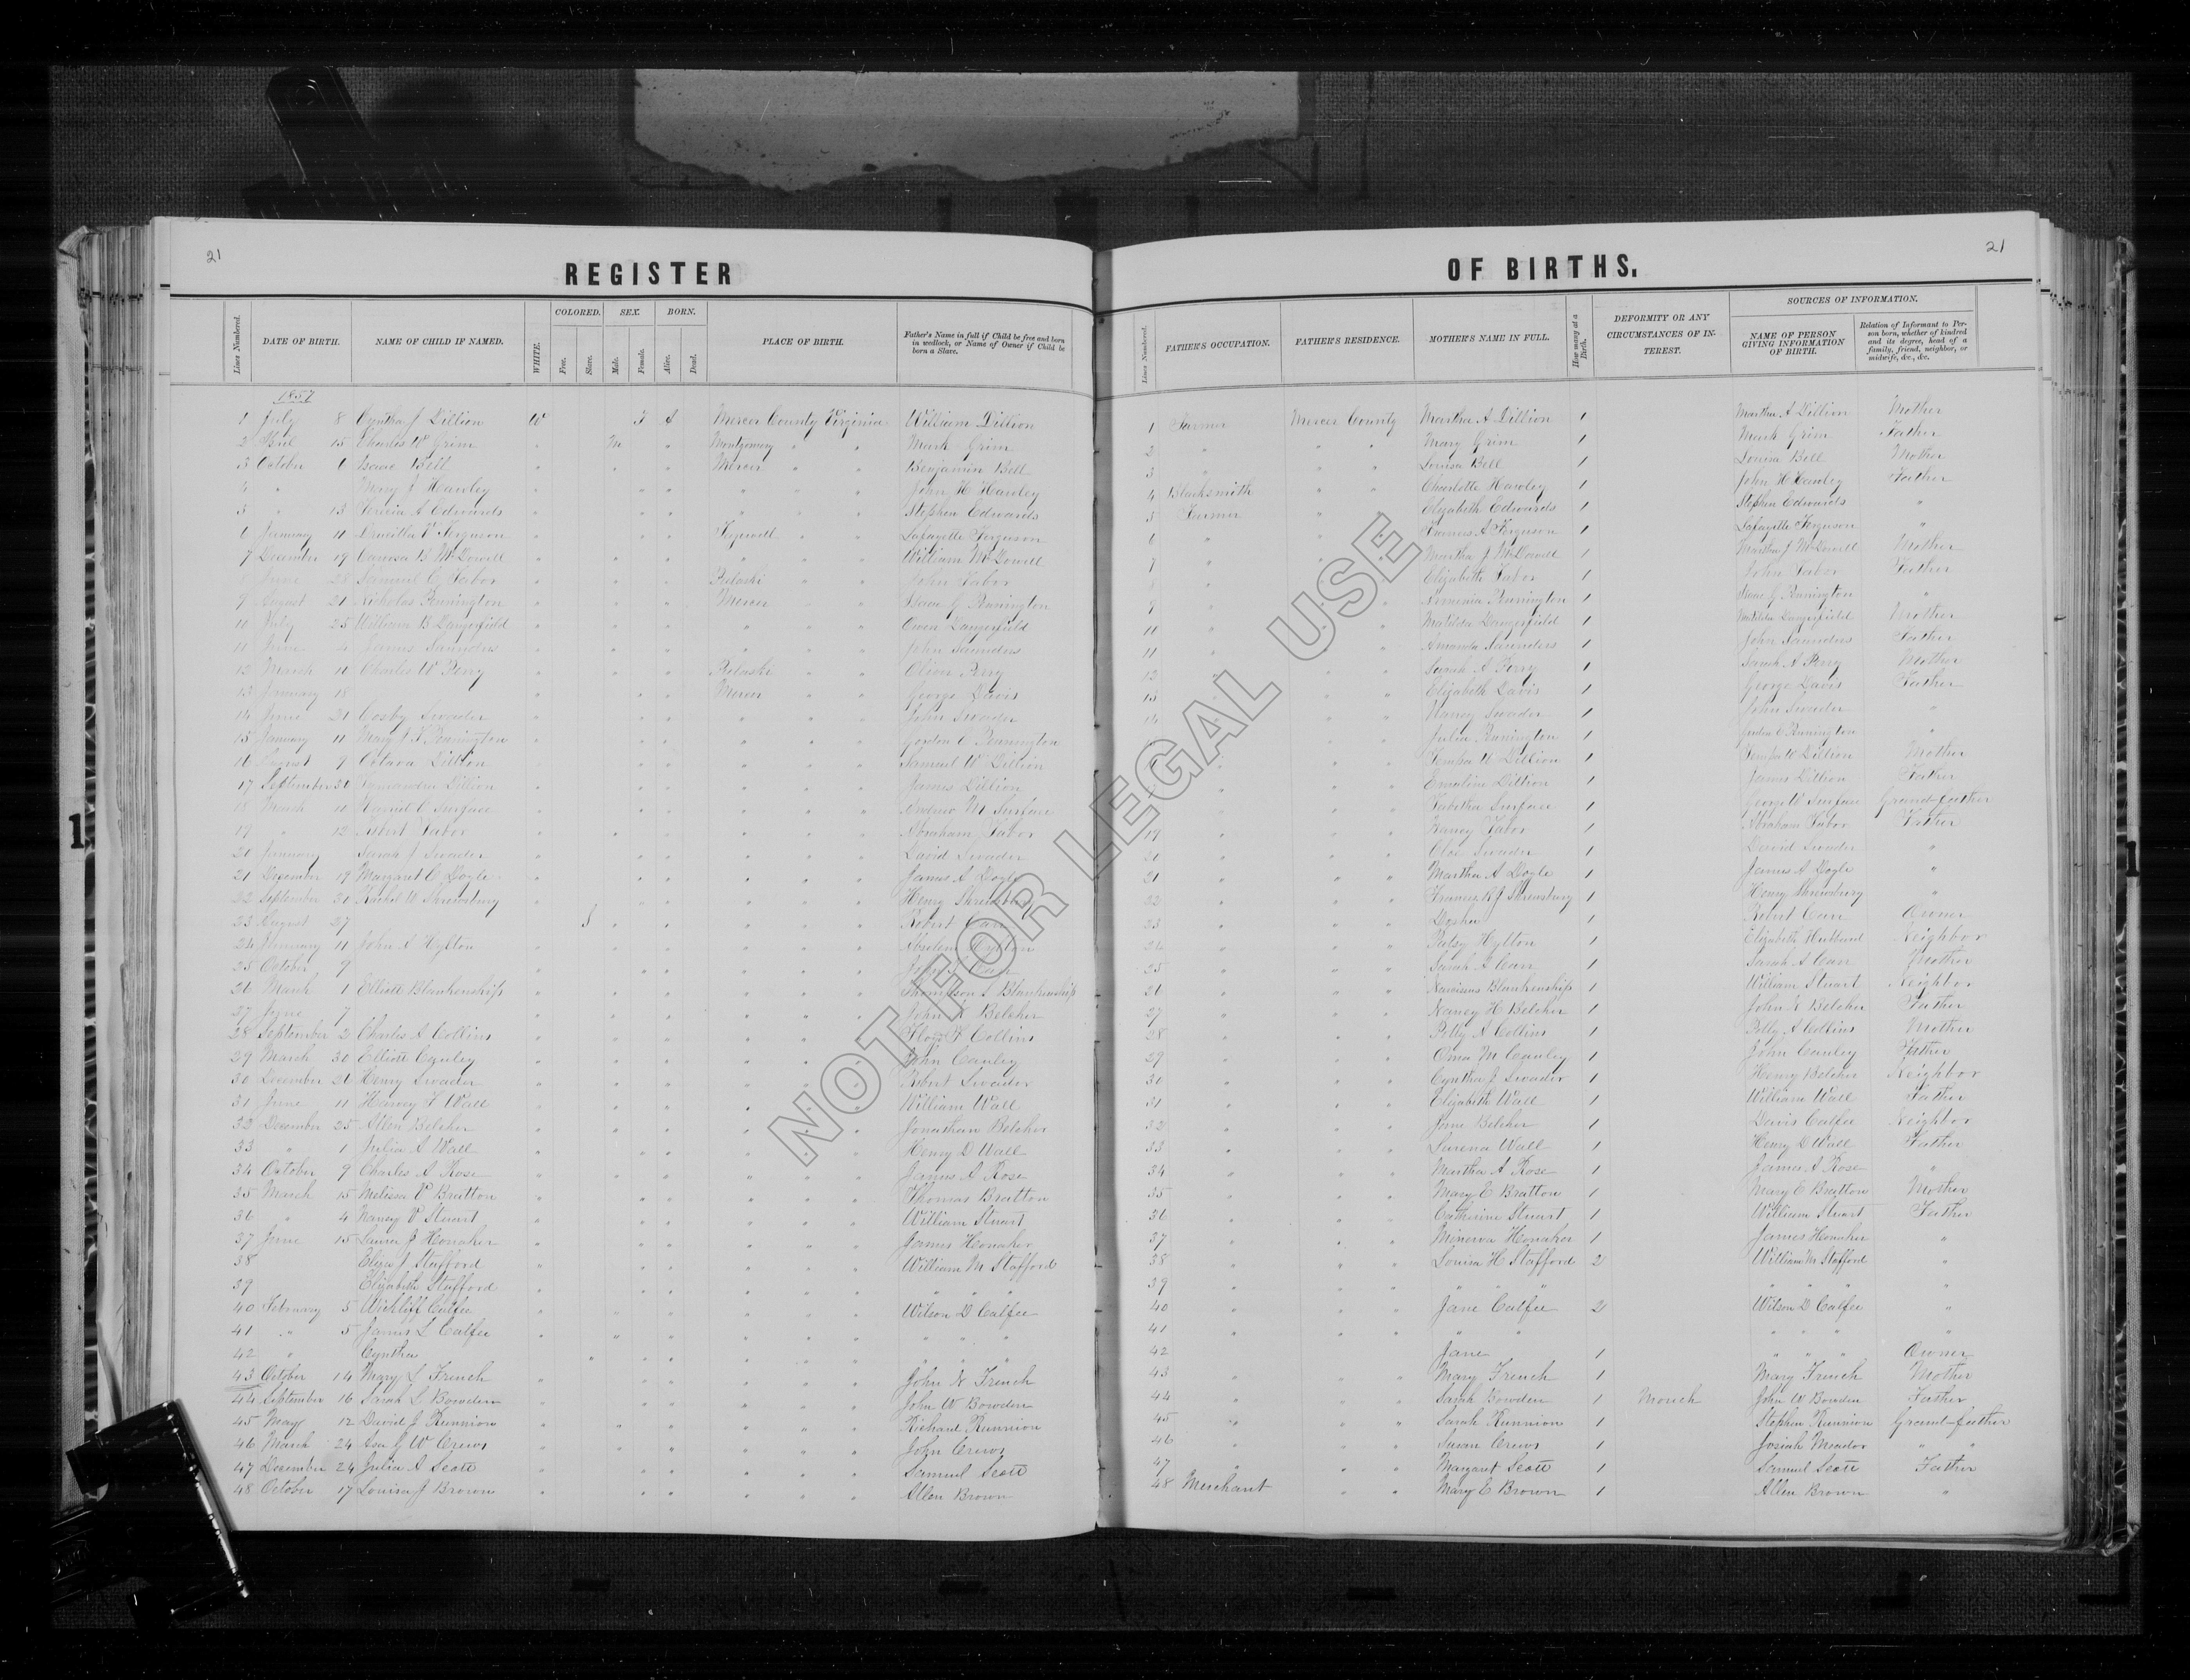 21
21
REGISTER
OF BIRTHS.
Lines Numbered. DATE OF BIRTH. NAME OF CHILD IF NAMED. WHITE. COLORED. Free. Slave. SEX. Male. Female. BORN. Alive. Dead. PLACE OF BIRTH. Father's Name in full if Child be free and born in wedlock, or Name of Owner if Child be born a Slave.
Lines Numbered. FATHER'S OCCUPATION. FATHER'S RESIDENCE. MOTHER'S NAME IN FULL. How many at a Birth. DEFORMITY OR ANY CIRCUMSTANCES OF INTEREST. SOURCES OF INFORMATION. NAME OF PERSON GIVING INFORMATION OF BIRTH. Relation of Informant to Person born, whether of kindred and its degree, head of a family, friend, neighbor, or midwife, &c., &c.
1857
1 July 8 Cyntha J Dillion W F A Mercer County Virginia William Dillion 1 Farmer Mercer County Martha A Dillion 1 Martha A Dillion Mother
2 15 Charles W Grim " M " Montgomery " " Mark Grim 2 " " " Mary Grim 1 Mark Grim Father
3 October 6 Isaac Bell " " " Mercer " " Benjamin Bell 3 " " " Louisa Bell 1 Louisa Bell Mother
4 " Mary J Hawley " " " " " " John H Hawley 4 Blacksmith " " Charlotte Hawley 1 John H Hawley Father
5 " 13 A Edwards " " " " " " Stephen Edwards 5 Farmer " " Elizabeth Edwards 1 Stephen Edwards "
6 January 11 Drucilla V Ferguson " " " " " Lafayette Ferguson 6 " " " Frances A Ferguson 1 Lafayette Ferguson "
7 December 19 B McDowell " " " " " " William McDowell 7 " " " Martha J McDowell 1 Martha J McDowell Mother
8 June 28 Samuel C Tabor " " " Pulaski " " John Tabor 8 " " " Elizabeth Tabor 1 John Tabor Father
9 August 21 Nicholas Pennington " " " Mercer " " Isaac G Pennington 9 " " " Pennington 1 Isaac G Pennington "
10 July 25 William B Dangerfield " " " " " " Owen Dangerfield " " " Matilda Dangerfield 1 Matilda Dangerfield Mother
11 June 4 James Saunders " " " " " " John Saunders 11 " " " Amanda Saunders 1 John Saunders Father
12 March 11 Charles W Perry " " " Pulaski " " Perry 12 " " " Sarah A Perry 1 Sarah A Perry Mother
13 January 18 " " " Mercer " " George Davis 13 " " " Elizabeth Davis 1 George Davis Father
14 June 21 Cosby Swader " " " " " " John Swader 14 " " " Nancy Swader 1 John Swader "
15 January 11 Mary J F Pennington " " " " " " Gordon C Pennington " " " Julia Pennington 1 Gordon C Pennington "
16 August 9 Octava Dillion " " " " " " Samuel W Dillion " " " W Dillion 1 W Dillion Mother
17 September 30 Dillion " " " " " " James Dillion " " " Emaline Dillion 1 James Dillion Father
18 March 10 Harriet C Surface " " " " " " Andrew M Surface " " " Tabitha Surface 1 George W Surface Grand-father
19 " 12 Tabor " " " " " " Abraham Tabor 19 " " " Nancy Tabor 1 Abraham Tabor Father
20 January Sarah J Swader " " " " " " David Swader 20 " " " Swader 1 David Swader "
21 December 19 Margaret C Dogle " " " " " " James A Dogle 21 " " " Martha A Dogle 1 James A Dogle "
22 September 30 Rachel W Shrewsbury " " " " " " Henry Shrewsbury 22 " " " Frances R J Shrewsbury 1 Henry Shrewsbury "
23 August 27 S " " " " " Robert Carr 23 " " " 1 Robert Carr Owner
24 January 11 John A Hylton " " " " " " Absolem Hylton 24 " " " Patsy Hylton 1 Elizabeth Neighbor
25 October 9 " " " " " " Carr 25 " " " Sarah A Carr 1 Sarah A Carr Mother
26 March 1 Elliott Blankenship " " " " " " Thompson Blankenship 26 " " " Blankenship 1 William Stuart Neighbor
27 June 7 " " " " " " Belcher 27 " " " Nancy H Belcher 1 John Belcher Father
28 September 2 Charles A Collins " " " " " " Collins 28 " " " Polly A Collins 1 Polly A Collins Mother
29 March 30 Elliott Cauley " " " " " " John Cauley 29 " " " M Cauley 1 John Cauley Father
30 December 26 Henry Swader " " " " " " Robert Swader 30 " " " Cyntha J Swader 1 Henry Belcher Neighbor
31 June 11 Harvey F Wall " " " " " " William Wall 31 " " " Elizabeth Wall 1 William Wall Father
32 December 25 Allen Belcher " " " " " " Jonathan Belcher 32 " " " Jane Belcher 1 Davis Calfee Neighbor
33 " 1 Julia A Wall " " " " " " Henry D Wall 33 " " " Wall 1 Henry D Wall Father
34 October 9 Charles A Rose " " " " " " James A Rose 34 " " " Martha A Rose 1 James A Rose "
35 March 15 Melissa V Bratton " " " " " " Thomas Bratton 35 " " " Mary E Bratton 1 Mary E Bratton Mother
36 " 4 Nancy V Stuart " " " " " " William Stuart 36 " " " Catherine Stuart 1 William Stuart Father
37 June 15 Laura J Honaker " " " " " " James Honaker 37 " " " Minerva Honaker 1 James Honaker "
38 Eliza J Stafford " " " " " " William M Stafford 38 " " " Louisa H Stafford 2 William M Stafford "
39 Elizabeth Stafford " " " " " " " " " 39 " " " " " " " " " "
40 February 5 Wickliff Calfee " " " " " " Wilson D Calfee 40 " " " Jane Calfee 2 Wilson D Calfee "
41 " 5 James L Calfee " " " " " " " " " 41 " " " " " " " " "
42 " Cyntha " " " " " " " " " 42 " " " Jane 1 " " " Owner
43 October 14 Mary L French " " " " " " John French 43 " " " Mary French 1 Mary French Mother
44 September 16 Sarah L Bowden " " " " " " John W Bowden 44 " " " Sarah Bowden 1 John W Bowden Father
45 May 12 David J Runnion " " " " " " Richard Runnion 45 " " " Sarah Runnion 1 Stephen Runnion Grand-father
46 March 24 Asa G W Crews " " " " " " John Crews 46 " " " Susan Crews 1 Josiah Meador " "
47 December 24 Julia A Scott " " " " " " Samuel Scott 47 " " " Margaret Scott 1 Samuel Scott Father
48 October 17 Louisa J Brown " " " " " " Allen Brown 48 Merchant " " Mary E Brown 1 Allen Brown "
NOT FOR LEGAL USE